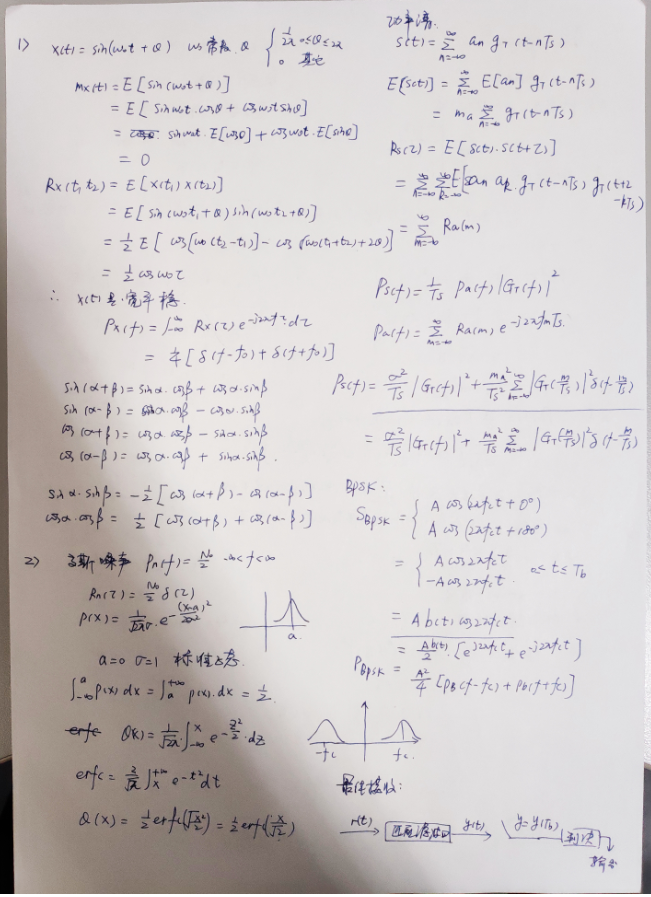 1) x(t) = sin(ω₀t + θ) ω₀常数 θ { 1/2π 0≤θ≤2π
0 其它
mx(t) = E[sin(ω₀t+θ)]
= E[sinω₀t·cosθ + cosω₀t sinθ]
= sinω₀t·E[cosθ] + cosω₀t·E[sinθ]
= 0
Rx(t₁ t₂) = E[x(t₁) x(t₂)]
= E[sin(ω₀t₁+θ) sin(ω₀t₂+θ)]
= 1/2 E[cos[ω₀(t₂-t₁)] - cos(ω₀(t₁+t₂)+2θ)]
= 1/2 cosω₀τ
∴ x(t)是宽平稳.
Px(f) = ∫₋∞^∞ Rx(τ) e^(-j2πfτ) dτ
= 1/4 [δ(f-f₀) + δ(f+f₀)]
sin(α+β) = sinα·cosβ + cosα·sinβ
sin(α-β) = sinα·cosβ - cosα·sinβ
cos(α+β) = cosα cosβ - sinα·sinβ
cos(α-β) = cosα·cosβ + sinα·sinβ.
sinα·sinβ = -1/2 [cos(α+β) - cos(α-β)]
cosα·cosβ = 1/2 [cos(α+β) + cos(α-β)]
2) 高斯噪声 Pn(f) = N₀/2 -∞<f<∞
Rn(τ) = N₀/2 δ(τ)
p(x) = 1/√2πσ · e^(-(x-a)²/2σ²)
a.
a=0 σ=1 标准正态.
∫₋∞^a p(x) dx = ∫_a^+∞ p(x)·dx = 1/2.
erfc Q(x) = 1/√2π · ∫₋∞^x e^(-z²/2) · dz
erfc = 2/√π ∫_x^+∞ e^(-t²) dt
Q(x) = 1/2 erfc(√(x²/2)) = 1/2 erf(x/√2)
功率谱.
s(t) = Σ_(n=-∞)^∞ an gT(t-nTs)
E[s(t)] = Σ_(n=-∞)^∞ E[an] gT(t-nTs)
= ma Σ_(n=-∞)^∞ gT(t-nTs)
Rs(τ) = E[s(t)·s(t+τ)]
= Σ_(n=-∞)^∞ Σ_(k=-∞)^∞ E[an ak·gT(t-nTs) gT(t+τ
-kTs)
= Σ_(m=-∞)^∞ Ra(m)
Ps(f) = 1/Ts Pa(f) |GT(f)|²
Pa(f) = Σ_(m=-∞)^∞ Ra(m) e^(-j2πfmTs)
Ps(f) = σ²/Ts |GT(f)|² + ma²/Ts² Σ_(m=-∞)^∞ |GT(m/Ts)|² δ(f-m/Ts)
= σ²/Ts |GT(f)|² + ma²/Ts Σ_(m=-∞)^∞ |GT(m/Ts)|² δ(f-m/Ts)
BPSK:
S_BPSK = { A cos(2πfct + 0°)
A cos(2πfct + 180°)
= { A cos2πfct
-A cos2πfct. 0≤t≤Tb
= A b(t) cos2πfct.
= Ab(t)/2 · [e^(j2πfct) + e^(-j2πfct)]
P_BPSK = A²/4 [PB(f-fc) + PB(f+fc)]
-fc fc.
最佳接收:
r(t) 匹配滤波 y(t) y=y(Tb) 判决
输出